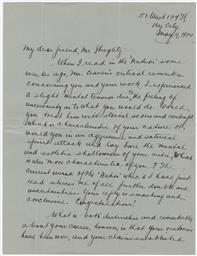 51 West 129 St
Ny City,
May 9, 1924
My dear friend, Mr. Braithwaite
When I read in the "Nation" some
weeks ago, Mr. critical remarks
concerning you and your work, I experienced
a slight mental tremor due the feeling of
uncertainty as to what you would do. Would
you treat him with stoical scorn and contempt
(which is characteristic of your nature) or
would you in an aggressive and satirical
spirit attack and lay bare the mental
and esthetic shallowness of your critic, (which
is also more characteristic of you)? The
current issue of the "Nation" which I have just
read relieves me of all further doubts and
uncertainties. Your reply is smashing and
conclusive. Congratulations!
What is both distinctive and remarkable
about your career, however, is that your victories
have been won, and your claims established